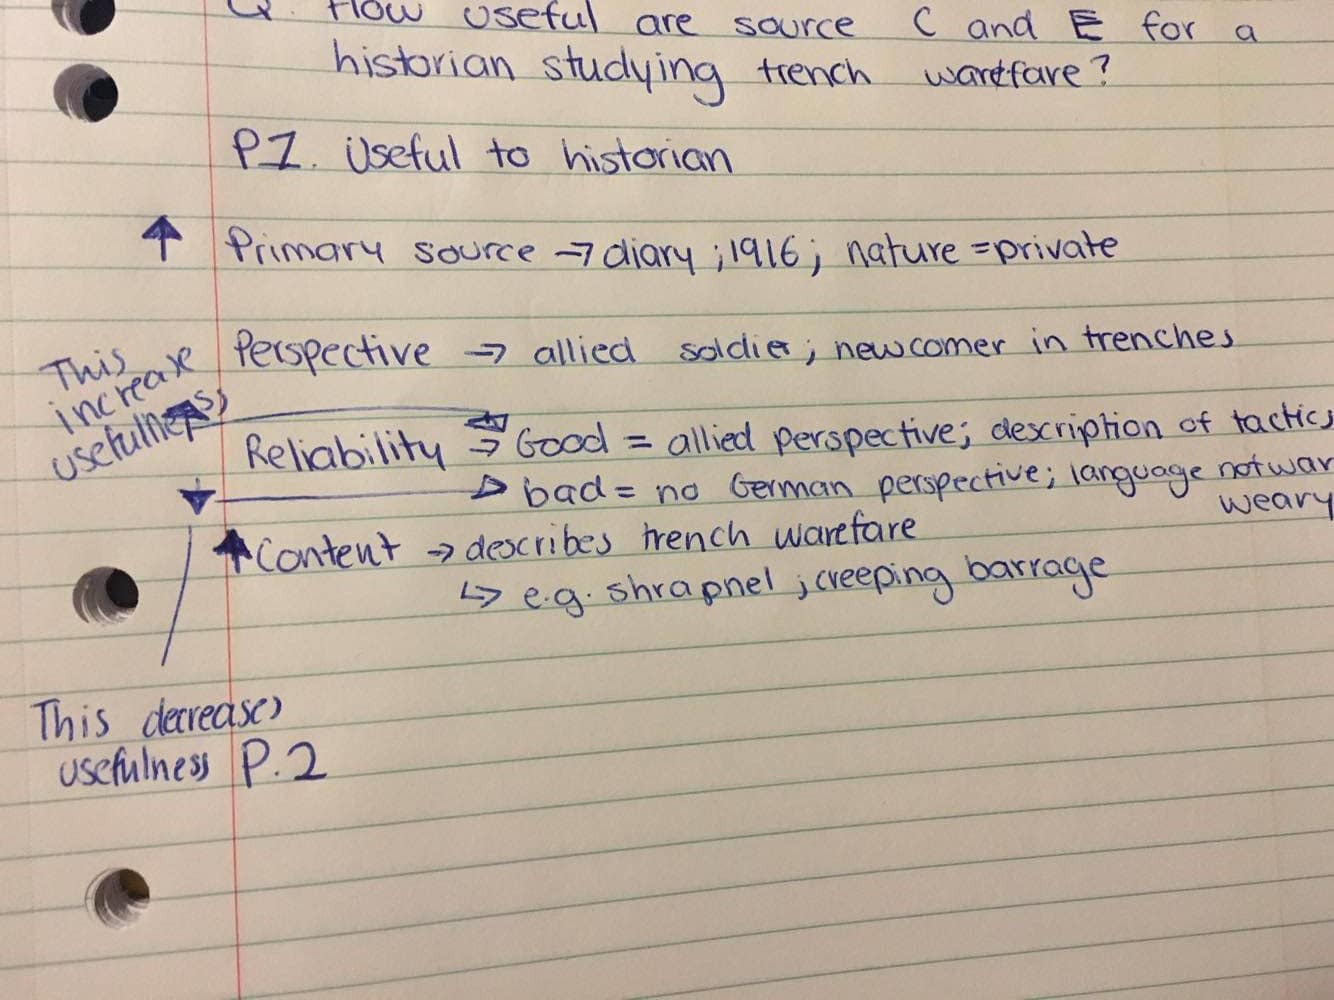 Q. How useful are source C and E for a
historian studying trench warfare?
P1. Useful to historian
↑ Primary source → diary ; 1916 ; nature = private
Perspective → allied soldier ; newcomer in trenches
This
increase
usefulness
Reliability → Good = allied perspective; description of tactics
→ bad = no German perspective; language not war
weary
↑ Content → describes trench warefare
↳ e.g. shrapnel ; creeping barrage
This decreases
usefulness
P.2